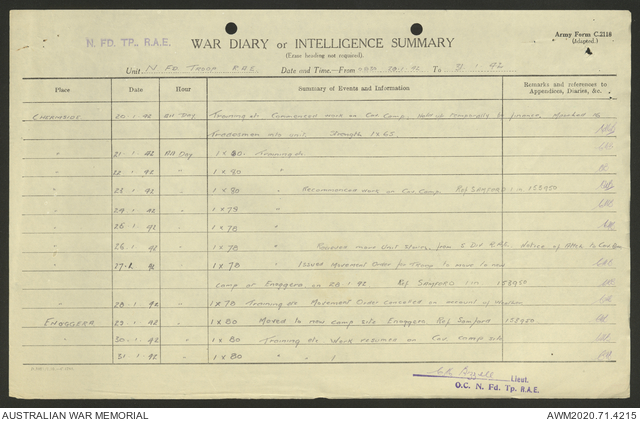 N. FD. TP., R.A.E.
WAR DIARY or INTELLIGENCE SUMMARY
Army Form C.2118
(Adapted.)
(Erase heading not required).
Unit N Fd Troop R.A.E. Date and Time—From 28.1.42 To 31.1.92
Place Date Hour Summary of Events and Information Remarks and references to Appendices, Diaries, &c.
CHERMSIDE 20.1.42 All Day Training etc Commenced work on Cav Camp. Held up temporarily finance. Marched in
Tradesmen unit Strength 1x65
" 21.1.42 All Day 1 x 80 Training etc
" 22.1.42 " 1 x 80 "
" 23.1.42 " 1 x 80 " Recommenced work on Cav Camp. Ref SAMFORD 1 in 158950
" 24.1.42 " 1 x 79 "
" 26.1.42 " 1 x 78 "
" 26.1.42 " 1 x 78 " Received more Unit Stores from 5 Div R.A.E. Notice of
" 27.1.42 " 1 x 78 " Issued Movement Order for Troop to move to new
camp at Enoggera on 28.1.92 Ref SAMFORD 1 in 158950
" 28.1.42 " 1 x 78 Training etc Movement Order cancelled on account of weather
ENOGGERA 29.1.42 " 1 x 80 Moved to new camp site Enoggera Ref Samford 158950
" 30.1.42 " 1 x 80 Training etc Work resumed on Cav camp site
31.1.42 " 1 x 80 "
Lieut.
O.C. N. Fd. Tp. R.A.E.
AUSTRALIAN WAR MEMORIAL
AWM2020.71.4215